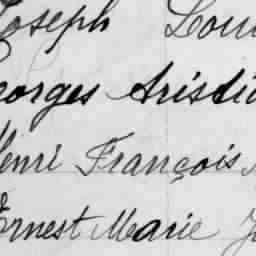 Joseph Loui
eorges Aristid
Henri François
Ernest Marie J